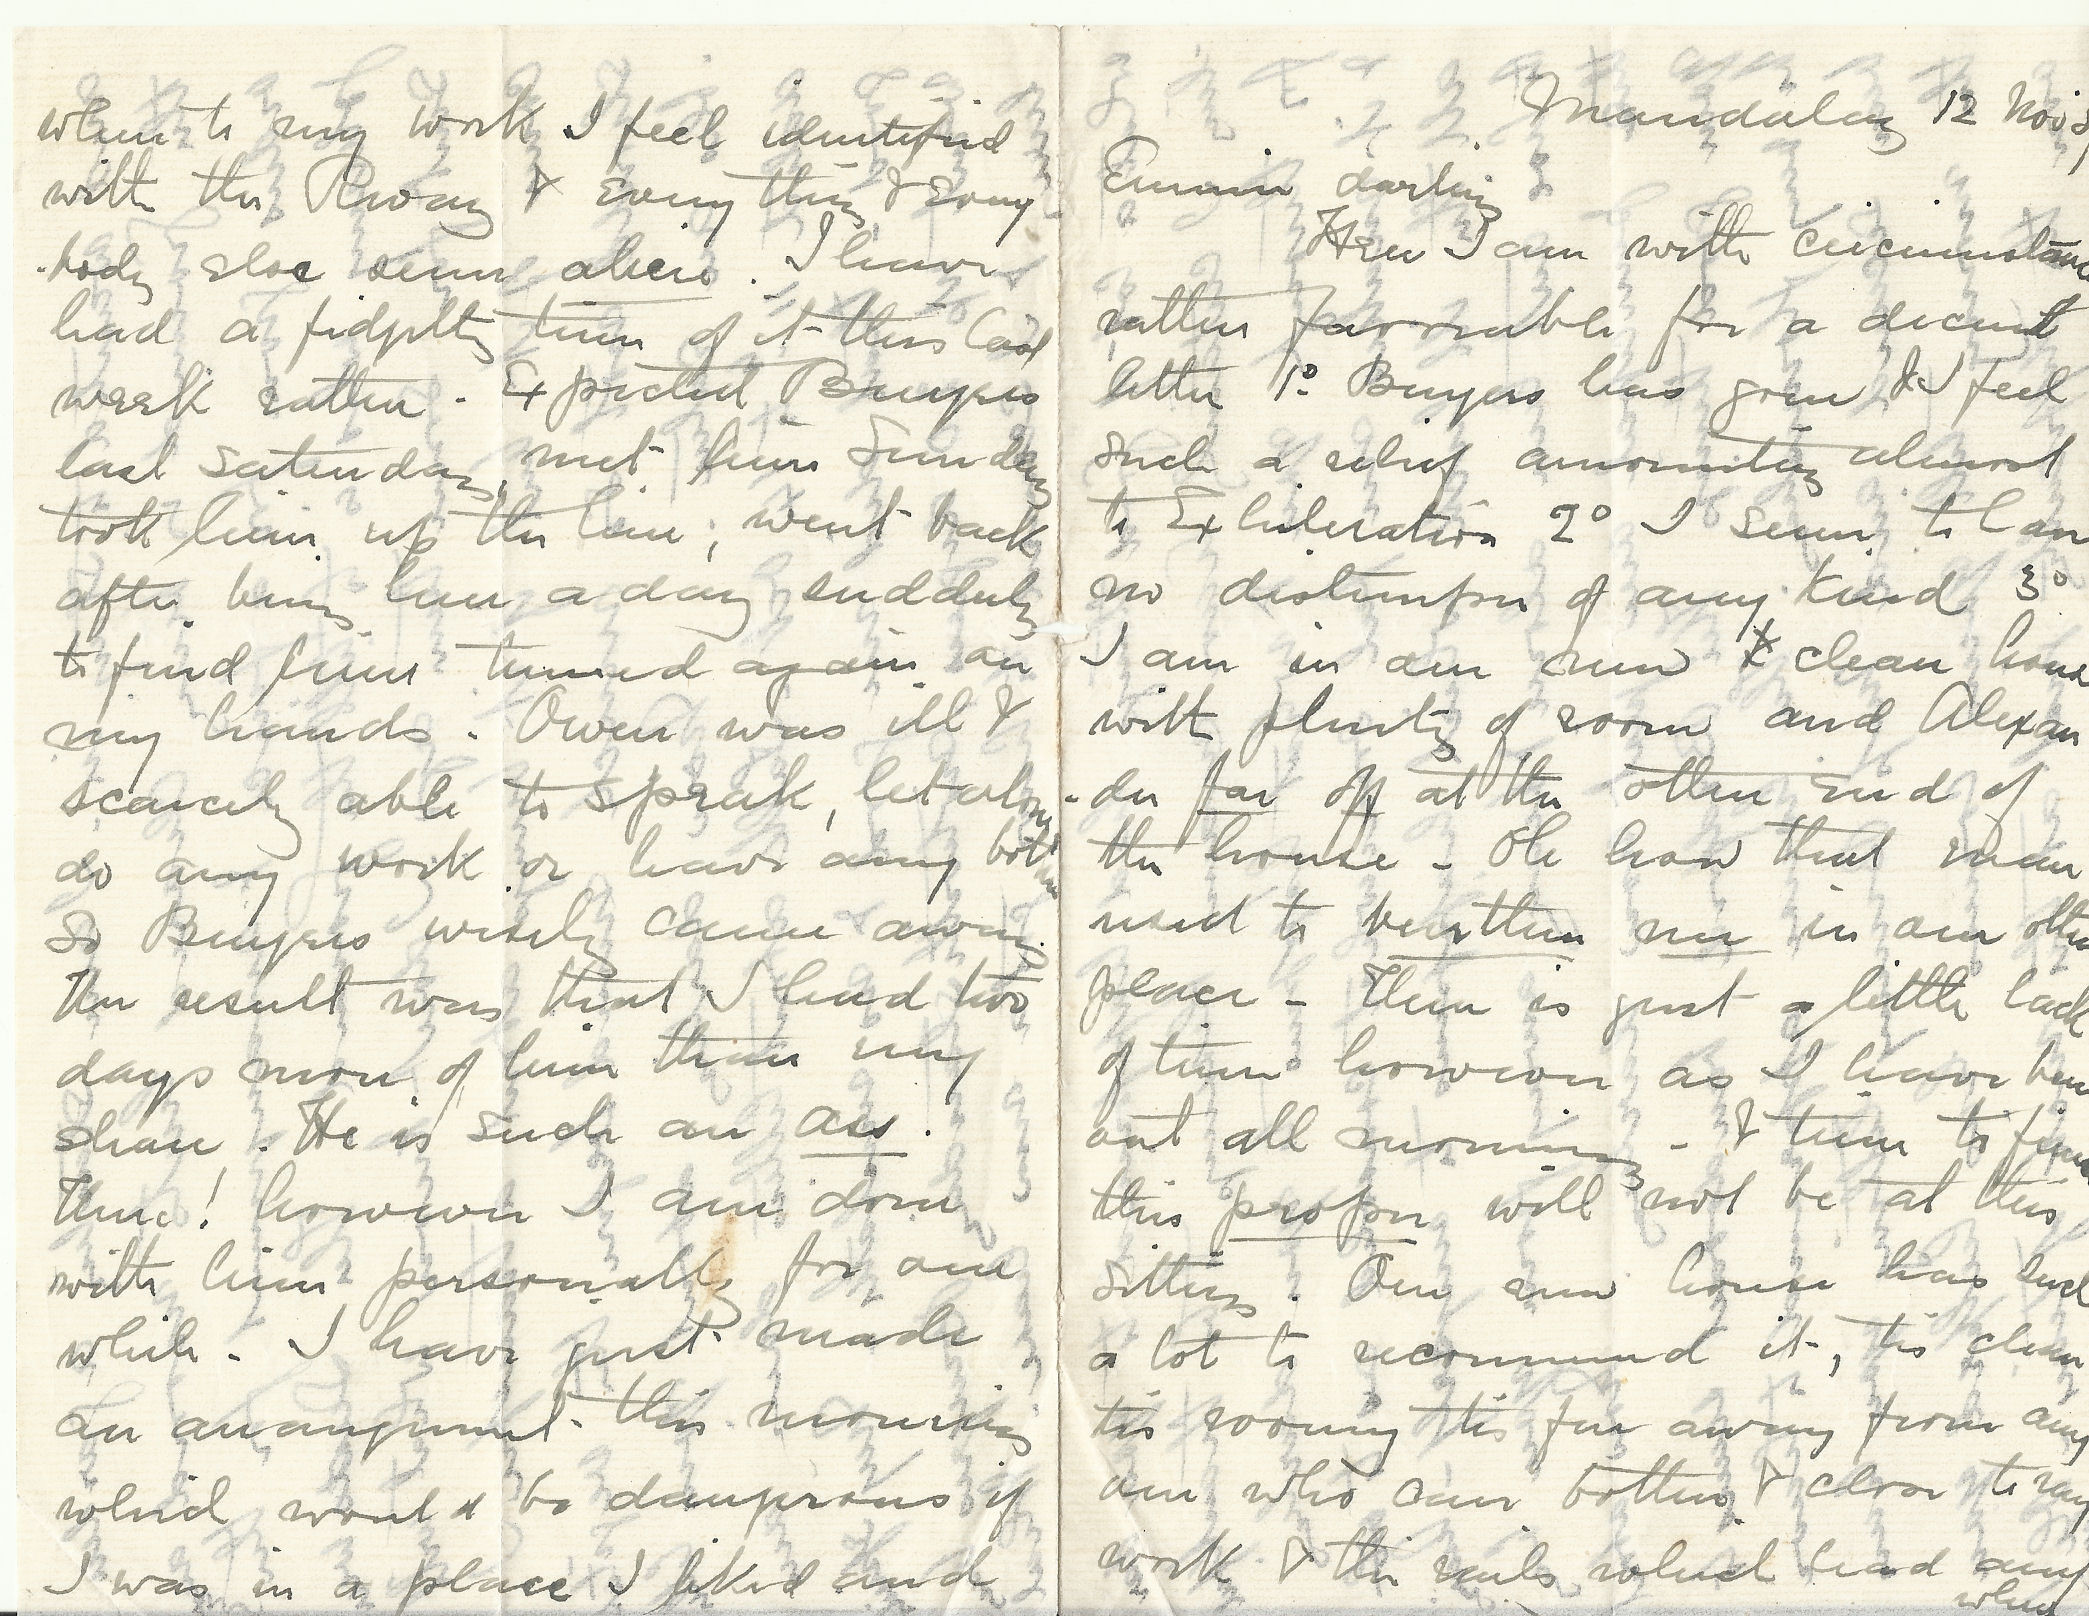 Mandalay 12 Nov
Emmie darling
Here I am with circumstance
rather favourable for a decent
letter 1º Buyers has gone & I feel
such a relief amounting almost
to Exhileration 2º I seem to have
no distemper of any kind 3º
I am in our new & clean house
with plenty of room and Alexan
-der far off at the other end of
the house - Oh how that man
used to burthen me in our other
place - There is just a little lack
of time however as I have been
out all morning - & time to finish
this proper will not be at this
sitting. Our new house has such
a lot to recommend it, tis clean
tis roomy tis far away from any
one who can bother & close to my
work & the rails which lead away
when
when to my work I feel identified
with the Rway & Every thing & Every
-body else seem alien. I have
had a fidgetty time of it this last
week rather - Expected Buyers
last Saturday, met him Sunday
took him up the line; went back
after being here a day suddenly
to find him turned again on
my hands - Owen was ill &
scarcely able to speak, let alone
do any work or have any bother
So Buyers wisely came away
The result was that I had two
days more of him than my
share. He is such an ass.
There! however I am done
with him personally for one
while - I have just made
an arrangement this morning
which would be dangerous if
I was in a place I liked and